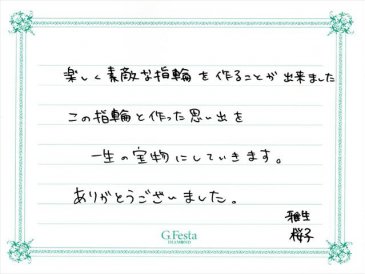 楽しく素敵な指輪を作ることが出来ました
この指輪と作った思い出を
一生の宝物にしていきます。
ありがとうございました。
雅生
桜子
G.Festa